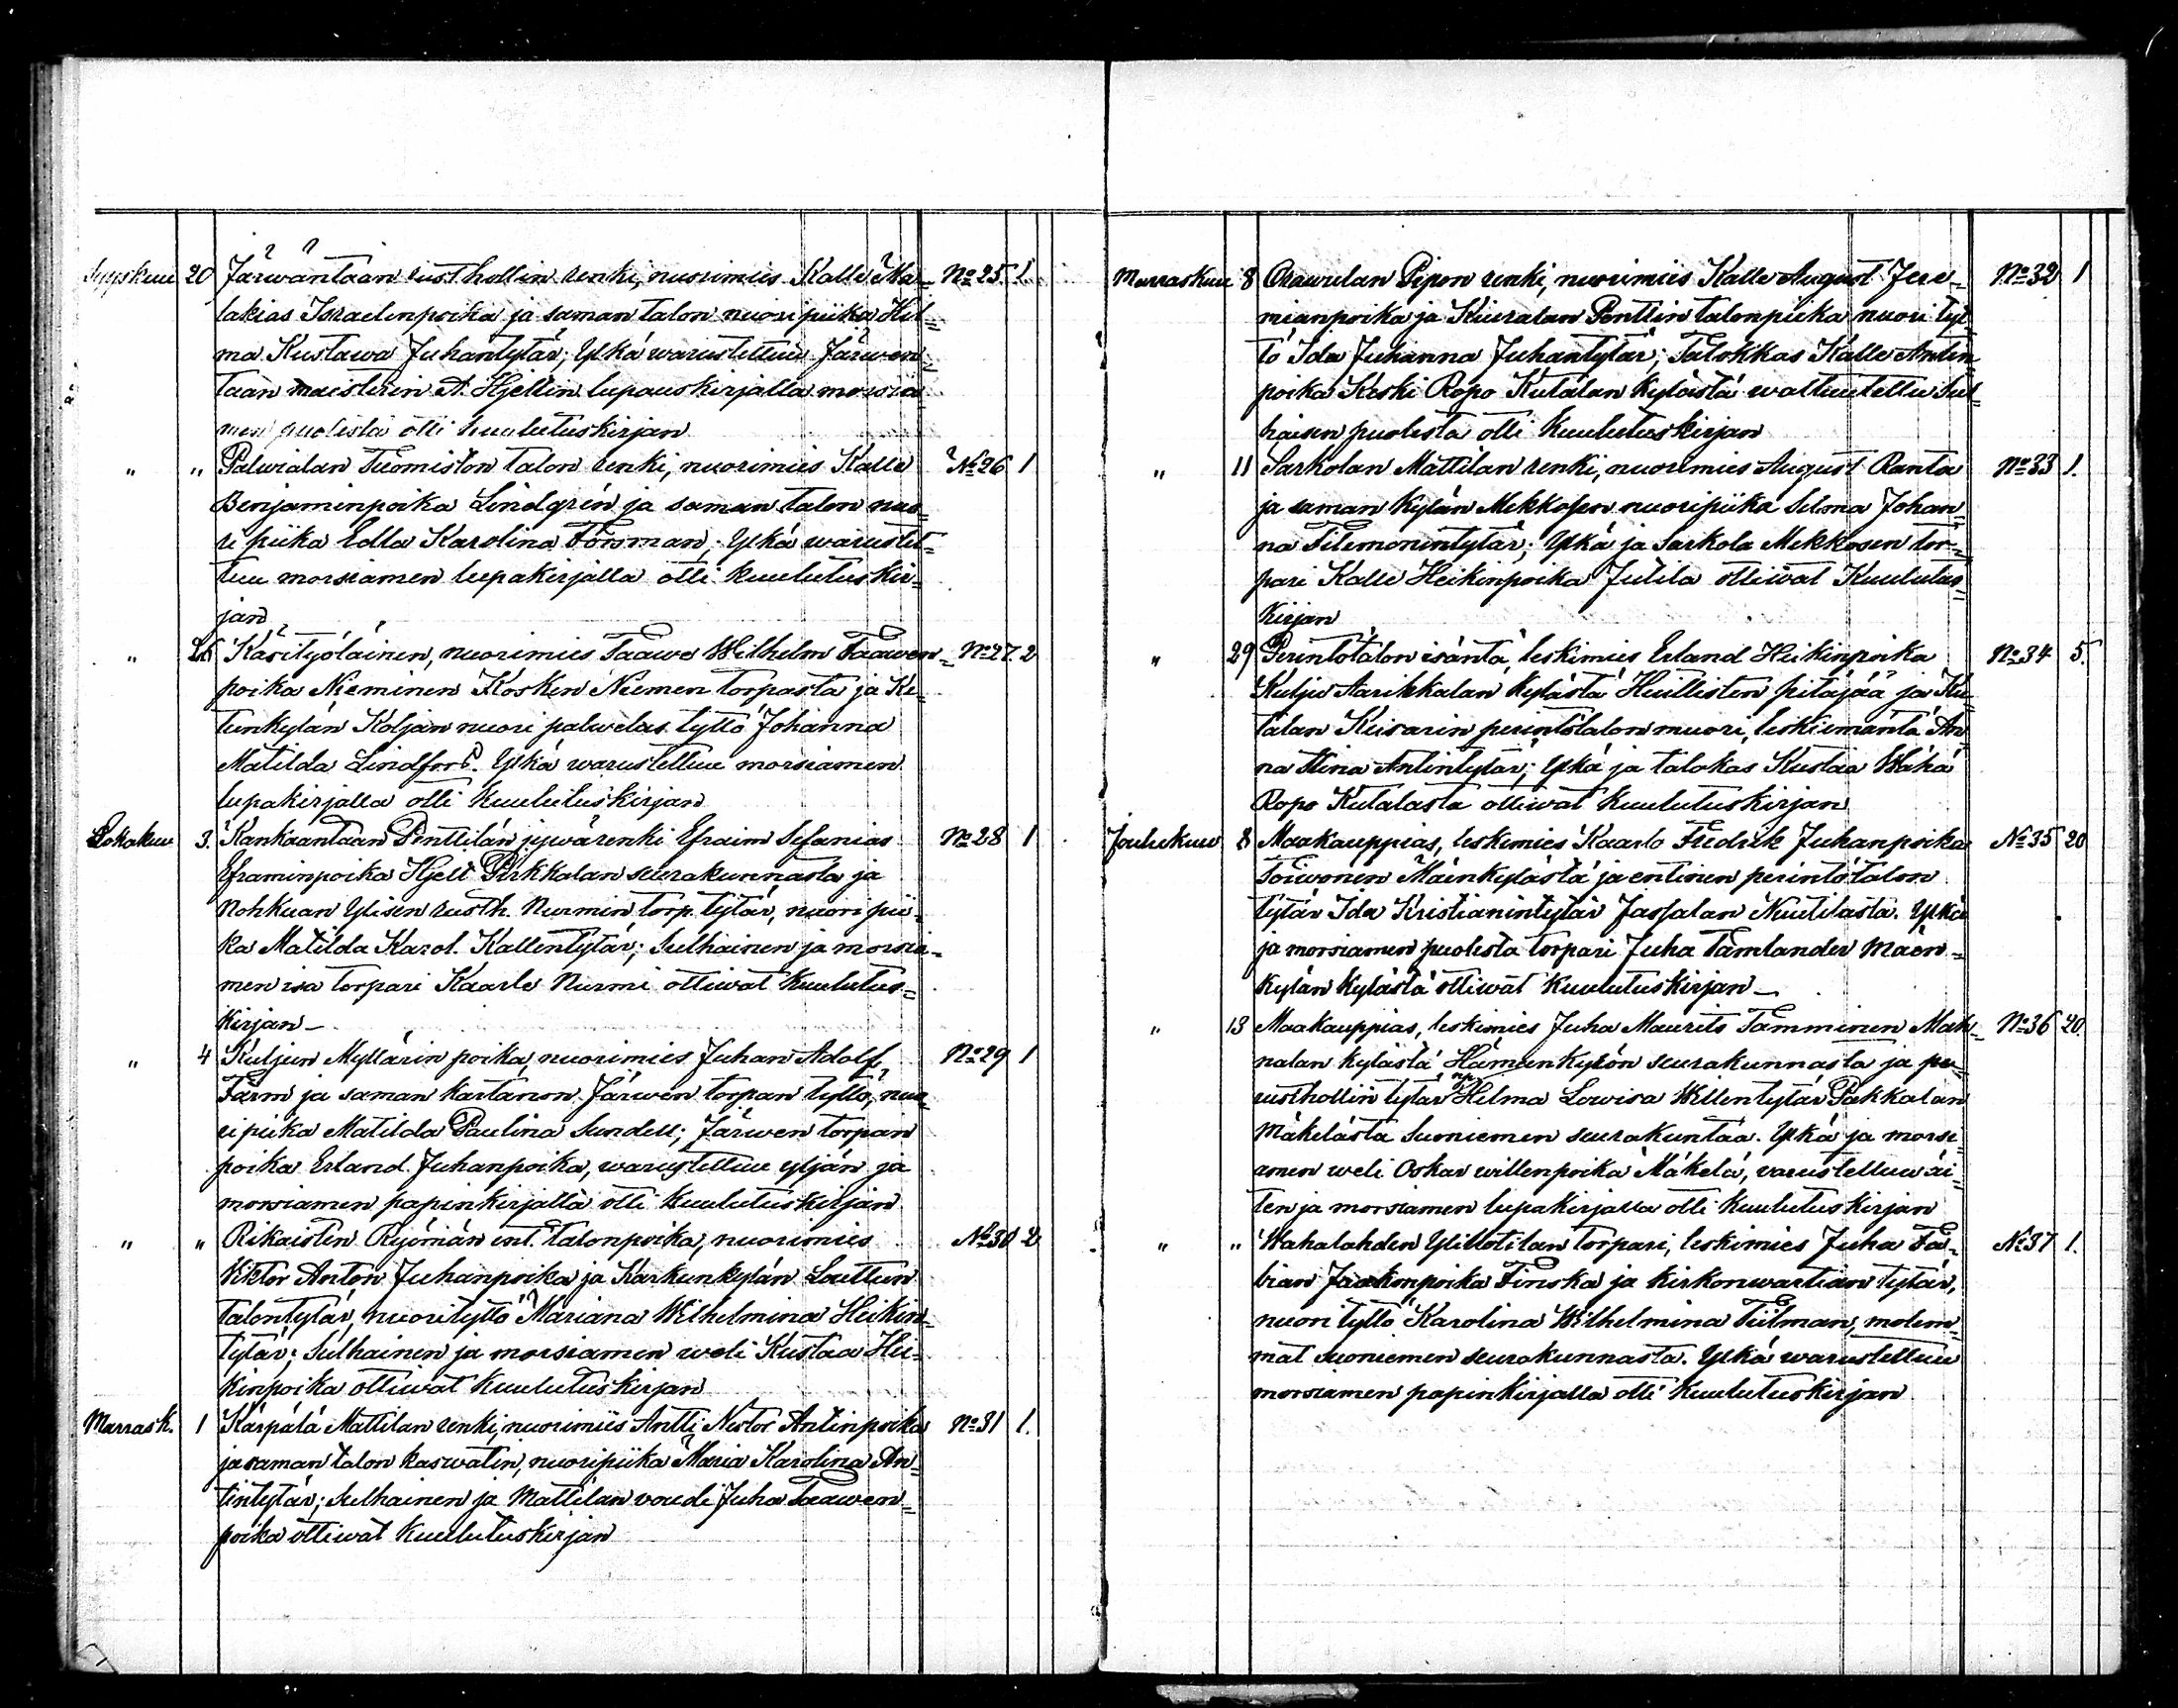 Syyskuu 20 Järwäntaan rusthollin renki, nuorimies Kalle Ma- No 25. 1.
lakias Israelinpoika ja saman talon nuori piika Hil-
ma Kustawa Juhantytär; Ylkä warustettuu Järwen-
taan maisterin A. Hjeltin lupauskirjalla morsia-
men puolesta otti kuulutuskirjan
" " Palwialan Tuomiston talon renki, nuorimies Kalle No 26 1
Benjaminpoika Lindgrén ja saman talon nuo-
ri piika Edla Karolina Forsman; Ylkä warustet-
tuu morsiamen lupakirjalla otti kuulutuskir-
jan
" 26 Käsityöläinen, nuorimies Taawe Wilhelm Taawen- No 27. 2
poika Nieminen Kosken Niemen torpasta ja Ke-
tunkylän Koljan nuori palwelus tyttö Johanna
Matilda Lindfors. Ylkä warustettuu morsiamen
lupakirjalla otti kuulutuskirjan
Lokakuu 3. Kankaantaan Penttilän jywärenki Efraim Sefanias No 28 1
Eframinpoika Hjelt Pirkkalan seurakunnasta ja
Nohkuan Ylisen rusth. Nurmin torp. tytär, nuori pii-
ka Matilda Karol. Kallentytär; Sulhainen ja morsia-
men isä torpari Kaarle Nurmi ottiwat kuulutus-
kirjan
" 4 Kuljun Myllärin poika, nuorimies Juhan Adolf No 29 1
Färm ja saman kartanon Järwen torpan tyttö, nuo-
ri piika Matilda Paulina Sundell; Järwen torpan
poika Erland Juhanpoika, warustettuu yljän ja
morsiamen papinkirjalla otti kuulutuskirjan
" " Rikaisten Ryömän ent. talonpoika, nuorimies No 30 2
Viktor Anton Juhanpoika ja Karkunkylän Lauttun
talontytär, nuorityttö Mariana Wilhelmina Heikin-
tytär; Sulhainen ja morsiamen weli Kustaa Hei-
kinpoika ottiwat kuulutuskirjan
Marrask. 1 Kärpälä Mattilan renki, nuorimies Antti Nestor Antinpoika No 31 1.
ja saman talon kaswatin, nuoripiika Maria Karolina An-
tintytär; Sulhainen ja Mattilan voudi Juha Taawen-
poika ottiwat kuulutuskirjan
Marraskuu 8 Orawulan Pipon renki, nuorimies Kalle August Jere- No 32 1
mianpoika ja Kiuralan Penttin talonpiika nuori tyt
tö Ida Juhanna Juhantytär; Talokkas Kalle Antin
poika Keski Ropo Kutalan kylästä waltuutettu Sul-
haisen puolesta otti kuulutuskirjan
" 11 Sarkolan Mattilan renki, nuorimies August Ranta No 33 1.
ja saman kylän Mekkosen nuoripiika Selma Johan-
na Filemonintytär; Ylkä ja Sarkola Mekkosen tor-
pari Kalle Heikinpoika Jutila ottiwat kuulutus-
kirjan
" 29 Perintötalon isäntä, leskimies Erland Heikinpoika No 34 5.
Kulju Aarikkalan kylästä Huittisten pitäjää ja Ku-
talan Keisarin perintötalon nuori, leskiemäntä An
na Stina Antintytär; Ylkä ja talokas Kustaa Wähä
Ropo Kutalasta ottiwat kuulutuskirjan
Joulukuu 8 Maakauppias, leskimies Kaarlo Fredrik Juhanpoika No 35 20
Toiwonen Mäenkylästä ja entinen perintötalon
tytär Ida Kristianintytär Jassalan Nuutilasta. Ylkä
ja morsiamen puolesta torpari Juha Tamlander Mäen-
kylän kylästä ottiwat kuulutuskirjan
" 13 Maakauppias, leskimies Juha Maurits Tamminen Mah- No 36 20.
nalan kylästä Hämeenkyrön seurakunnasta ja pe-
rusthollin tytär Hilma Lowisa Willentytär Pakkalan
Mäkelästä Suoniemen seurakuntaa. Ylkä ja morsi
amen weli Oskar willenpoika Mäkelä, varustettuu äi-
ten ja morsiamen lupakirjalla otti kuulutuskirjan
" " Wahalahden Ylillotilan torpari, leskimies Juha Fa- No 37 1.
bian Jaakonpoika Finska ja kirkonwartian tytär,
nuori tyttö Karolina Wilhelmina Tiilman, molem-
mat Suoniemen seurakunnasta. Ylkä warustettuu
morsiamen papinkirjalla otti kuulutuskirjan